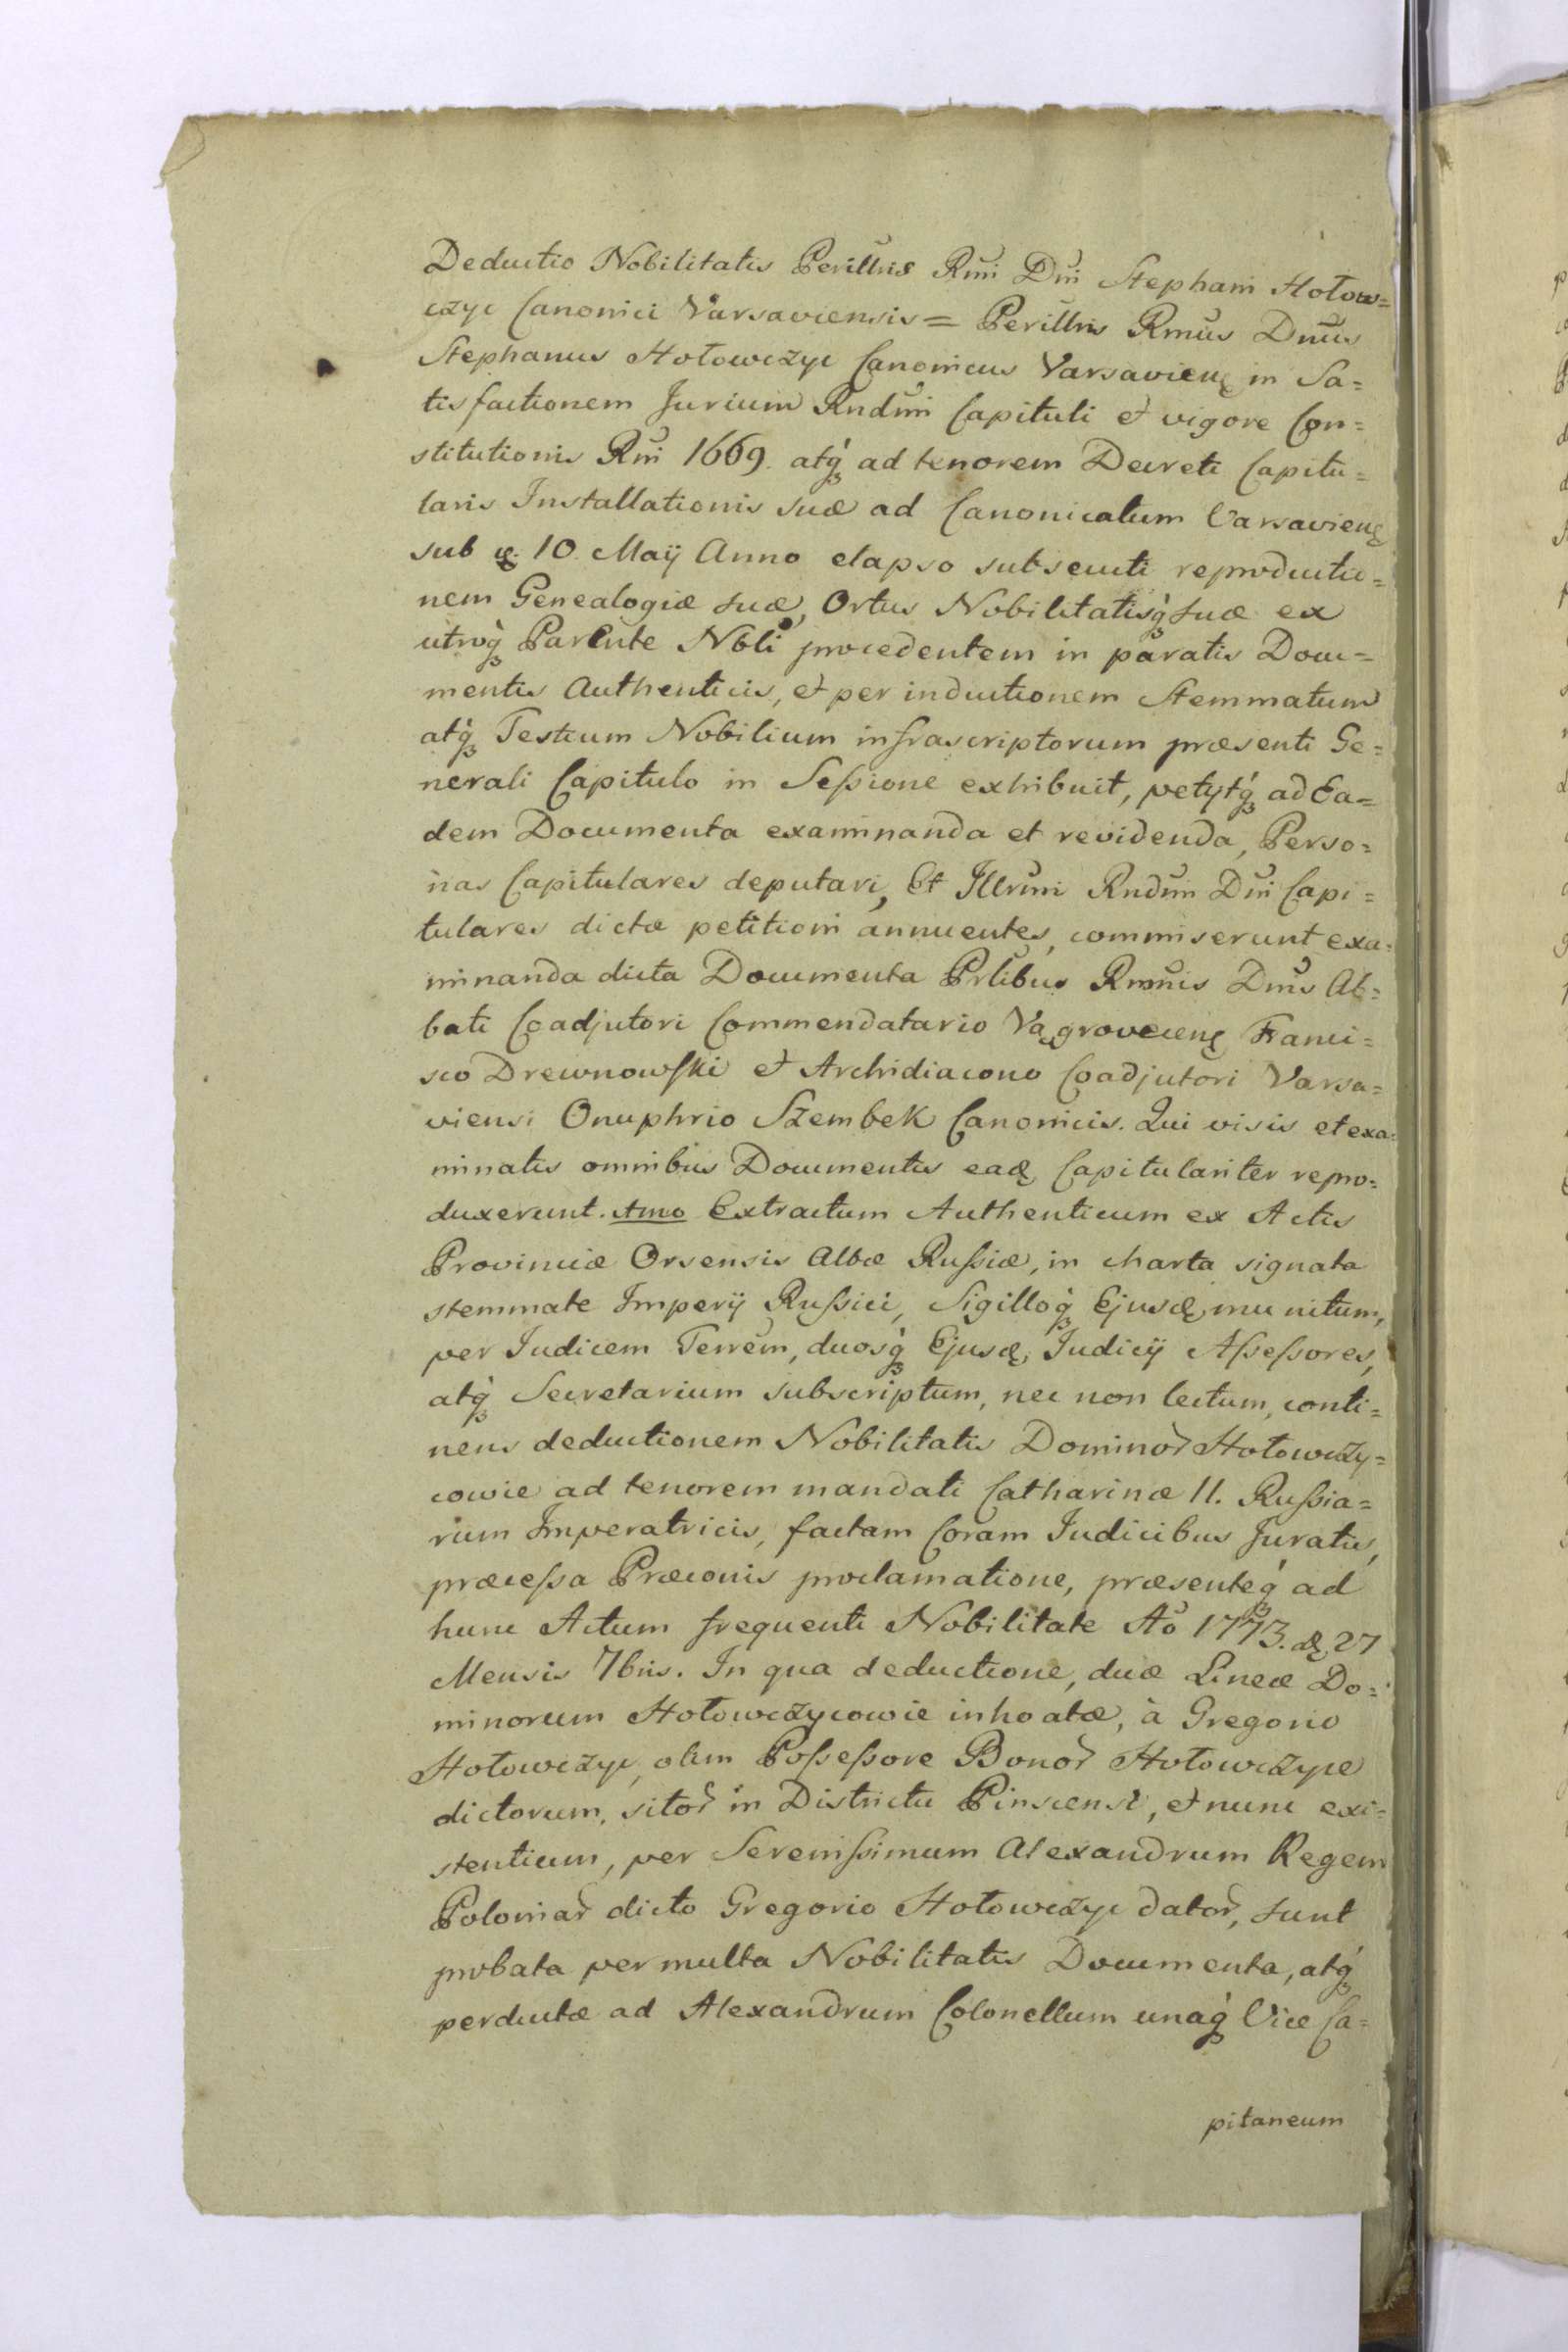 Deductio Nobilitatis Perillris Rmi Dni Stephani Hołow=
czyc Canonici Varsaviensis = Perillris Rmus Dnus
Stephanus Hołowczyc Canonicus Varsavien̄ in Sa=
tisfactionem Jurium Rndmi Capituli et vigore Con=
stitutionis Rni 1669. atq́ꝫ ad tenorem Decreti Capitu=
laris Installationis suæ ad Canonicatum Varsavien̄
sub d. 10. Maÿ Anno elapso subsecuti reproductio=
nem Genealogiæ suæ, Ortus Nobilitatisq́ꝫ suæ ex
utroq́ꝫ Parente Nobli procedentem in paratis Docu=
mentis Authenticis, et per inductionem Stemmatum
atq́ꝫ Testium Nobilium infrascriptorum præsenti Ge=
nerali Capitulo in Sessione exhibuit, petytq́ꝫ ad Ea=
dem Documenta examinanda et revidenda, Perso=
nas Capitulares deputari, Et Illrmi Rndmi Dni Capi=
tulares dictæ petitioni annuentes, commiserunt exa=
minanda dicta Documenta Prlibus Rmnis Dnis Ab=
bati Coadjutori Commendatario Vągrovecen̄ Franci=
sco Drewnowski et Archidiacono Coadjutori Varsa=
viensi Onuphrio Szembek Canonicis. Qui visis et exa=
minatis omnibus Documentis ead. Capitulariter repro=
duxerunt. Amo Extractum Authenticum ex Actis
Provinciæ Orsensis Albæ Russiæ, in charta signata
stemmate Imperij Russici, Sigilloq́ꝫ Ejusd. munitum,
per Judicem Terrem, duosq́ꝫ Ejusd. Judicÿ Assessores,
atq́ꝫ Secretarium subscriptum, nec non lectum, conti=
nens deductionem Nobilitatis Dominor̄ Hołowczy=
cowie ad tenorem mandati Catharinæ II. Russia=
rum Imperatricis, factam Coram Judicibus Juratis,
præcessa Præconis proclamatione, præsenteq́ꝫ ad
hunc Actum frequenti Nobilitate Ao 1773. d. 27
Mensis 7bris. In qua deductione, duæ Lineæ Do=
minorum Hołowczycowie inhoatæ, à Gregorio
Hołowczyc, olim Possessore Bonor̄ Hołowczyce
dictorum, sitor̄ in Districtu Pinscensi, et nunc exi=
stentium, per Serenissimum Alexandrum Regem
Poloniar̄ dicto Gregorio Hołowczyc dator̄, sunt
probata per multa Nobilitatis Documenta, atq́ꝫ
perductæ ad Alexandrum Colonellum unaq́ꝫ Vice Ca=
pitaneum